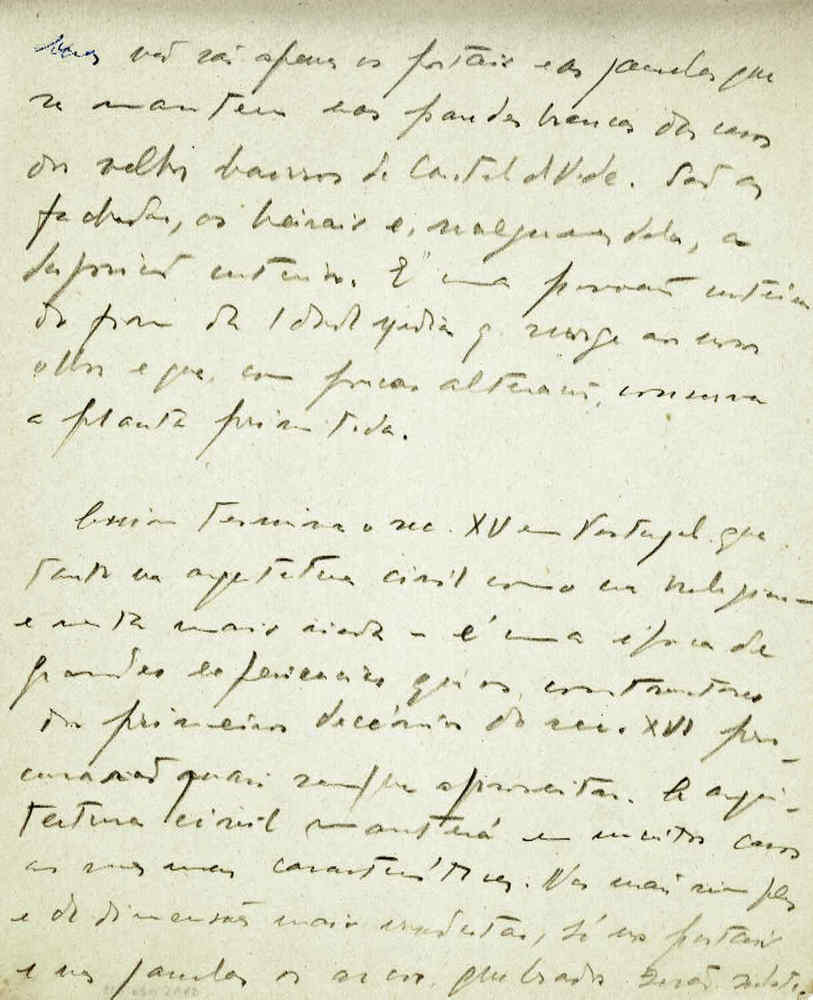 Mas não são apenas os portais e as janelas que
se mantem nas paredes brancas das casas
dos velhos bairros de Castelo de Vide. São as
fachadas, os beirais e, nalgumas delas, a
disposição interior. É uma povoação inteira
do fim da Idade Média q. surge aos nossos
olhos e que, com poucas alterações, conserva
a planta primitiva.
Assim termina o sec. XV em Portugal que
tanto na arquitetura civil como na religiosa –
e nesta mais ainda – é uma época de
grandes experiencias que os construtores
dos primeiros decénios do sec. XVI pro-
curarão quasi sempre aproveitar. A arqui-
tectura civil manterá em muitos casos
as mesmas características. Nas mais simples
e de dimensões mais reduzidas, só nos portais
e nas janelas os arcos quebrados serão